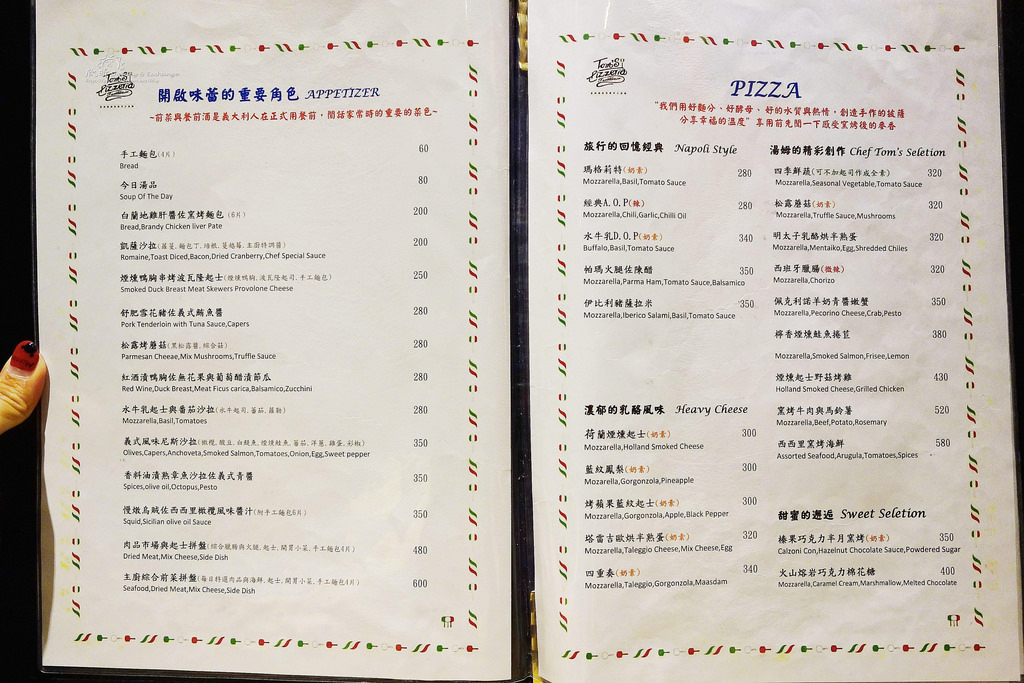 Tom's
Pizzeria
開啟味蕾的重要角色 APPETIZER
~前菜與餐前酒是義大利人在正式用餐前，閒話家常時的重要的菜色~
手工麵包(4片) 60
Bread
今日湯品 80
Soup Of The Day
白蘭地雞肝醬佐窯烤麵包 (6片) 200
Bread,Brandy Chicken liver Pate
凱薩沙拉(蘿蔓,麵包丁,培根,蔓越莓,主廚特調醬) 200
Romaine,Toast Diced,Bacon,Dried Cranberry,Chef Special Sauce
煙燻鴨胸串烤波瓦隆起士(煙燻鴨胸,波瓦隆起司,手工麵包) 250
Smoked Duck Breast Meat Skewers Provolone Cheese
舒肥雪花豬佐義式鮪魚醬 280
Pork Tenderloin with Tuna Sauce,Capers
松露烤蘑菇(黑松露醬,綜合菇) 280
Parmesan Cheeae,Mix Mushrooms,Truffle Sauce
紅酒漬鴨胸佐無花果與葡萄醋漬節瓜 280
Red Wine,Duck Breast,Meat Ficus carica,Balsamico,Zucchini
水牛乳起士與番茄沙拉(水牛起司,蕃茄,蘿勒) 280
Mozzarella,Basil,Tomatoes
義式風味尼斯沙拉(橄欖,酸豆,白鯷魚,煙燻鮭魚,蕃茄,洋蔥,雞蛋,彩椒) 350
Olives,Capers,Anchoveta,Smoked Salmon,Tomatoes,Onion,Egg,Sweet pepper
香料油漬熟章魚沙拉佐義式青醬 350
Spices,olive oil,Octopus,Pesto
慢燉烏賊佐西西里橄欖風味醬汁(附手工麵包6片) 350
Squid,Sicilian olive oil Sauce
肉品市場與起士拼盤(綜合臘腸與火腿,起士,開胃小菜,手工麵包4片) 480
Dried Meat,Mix Cheese,Side Dish
主廚綜合前菜拼盤(每日特選肉品與海鮮,起士,開胃小菜,手工麵包4片) 600
Seafood,Dried Meat,Mix Cheese,Side Dish
Tom's
Pizzeria
PIZZA
"我們用好麵分、好酵母、好的水質與熱情，創造手作的披薩
分享幸福的溫度" 享用前先聞一下感受窯烤後的麥香
旅行的回憶經典 Napoli Style
瑪格莉特(奶素) 280
Mozzarella,Basil,Tomato Sauce
經典A.O.P(辣) 280
Mozzarella,Chili,Garlic,Chilli Oil
水牛乳D.O.P(奶素) 340
Buffalo,Basil,Tomato Sauce
帕瑪火腿佐陳醋 350
Mozzarella,Parma Ham,Tomato Sauce,Balsamico
伊比利豬薩拉米 350
Mozzarella,Iberico Salami,Basil,Tomato Sauce
濃郁的乳酪風味 Heavy Cheese
荷蘭煙燻起士(奶素) 300
Mozzarella,Holland Smoked Cheese
藍紋鳳梨(奶素) 300
Mozarella,Gorgonzola,Pineapple
烤蘋果藍紋起士(奶素) 300
Mozzarella,Gorgonzola,Apple,Black Pepper
塔雷吉歐烘半熟蛋(奶素) 320
Mozzarella,Taleggio Cheese,Mix Cheese,Egg
四重奏(奶素) 340
Mozzarella,Taleggio,Gorgonzola,Maasdam
湯姆的精彩創作 Chef Tom's Seletion
四季鮮蔬(可不加起司作成全素) 320
Mozzarella,Seasonal Vegetable,Tomato Sauce
松露蘑菇(奶素) 320
Mozzarella,Truffle Sauce,Mushrooms
明太子乳酪烘半熟蛋 320
Mozzarella,Mentaiko,Egg,Shredded Chiles
西班牙臘腸(微辣) 320
Mozzarella,Chorizo
佩克利諾羊奶青醬嫩蟹 350
Mozzarella,Pecorino Cheese,Crab,Pesto
檸香煙燻鮭魚捲苣 380
Mozzarella,Smoked Salmon,Frisee,Lemon
煙燻起士野菇烤雞 430
Holland Smoked Cheese,Grilled Chicken
窯烤牛肉與馬鈴薯 520
Mozzarella,Beef,Potato,Rosemary
西西里窯烤海鮮 580
Assorted Seafood,Arugula,Tomatoes,Spices
甜蜜的邂逅 Sweet Seletion
榛果巧克力半月窯烤(奶素) 350
Calzoni Con,Hazelnut Chocolate Sauce,Powdered Sugar
火山熔岩巧克力棉花糖 400
Mozzarella,Caramel Cream,Marshmallow,Melted Chocolate